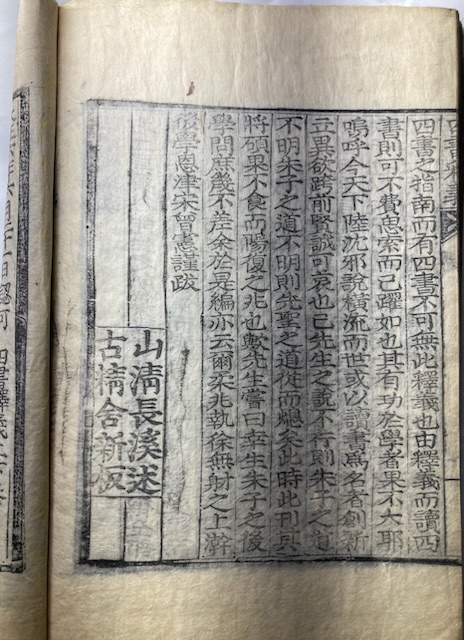 四書釋義
四書之指南而有四書不可無此釋義也由釋義而讀四
書則可不費思索而已躍如也其有功於學者果不大耶
嗚呼今天下陸沈邪說橫流而世或以讀書爲名者創新
立異欲跨前賢誠可哀也已先生之說不行則朱子之道
不明朱子之道不明則先聖之道從而熄矣此時此刊其
將碩果不食而陽復之兆也歟先生嘗曰幸生朱子之後
學問庶幾不差余於是編亦云爾柒兆執徐無射之上澣
後學恩津宋曾憲謹跋
山淸長溪述
古精舍新板